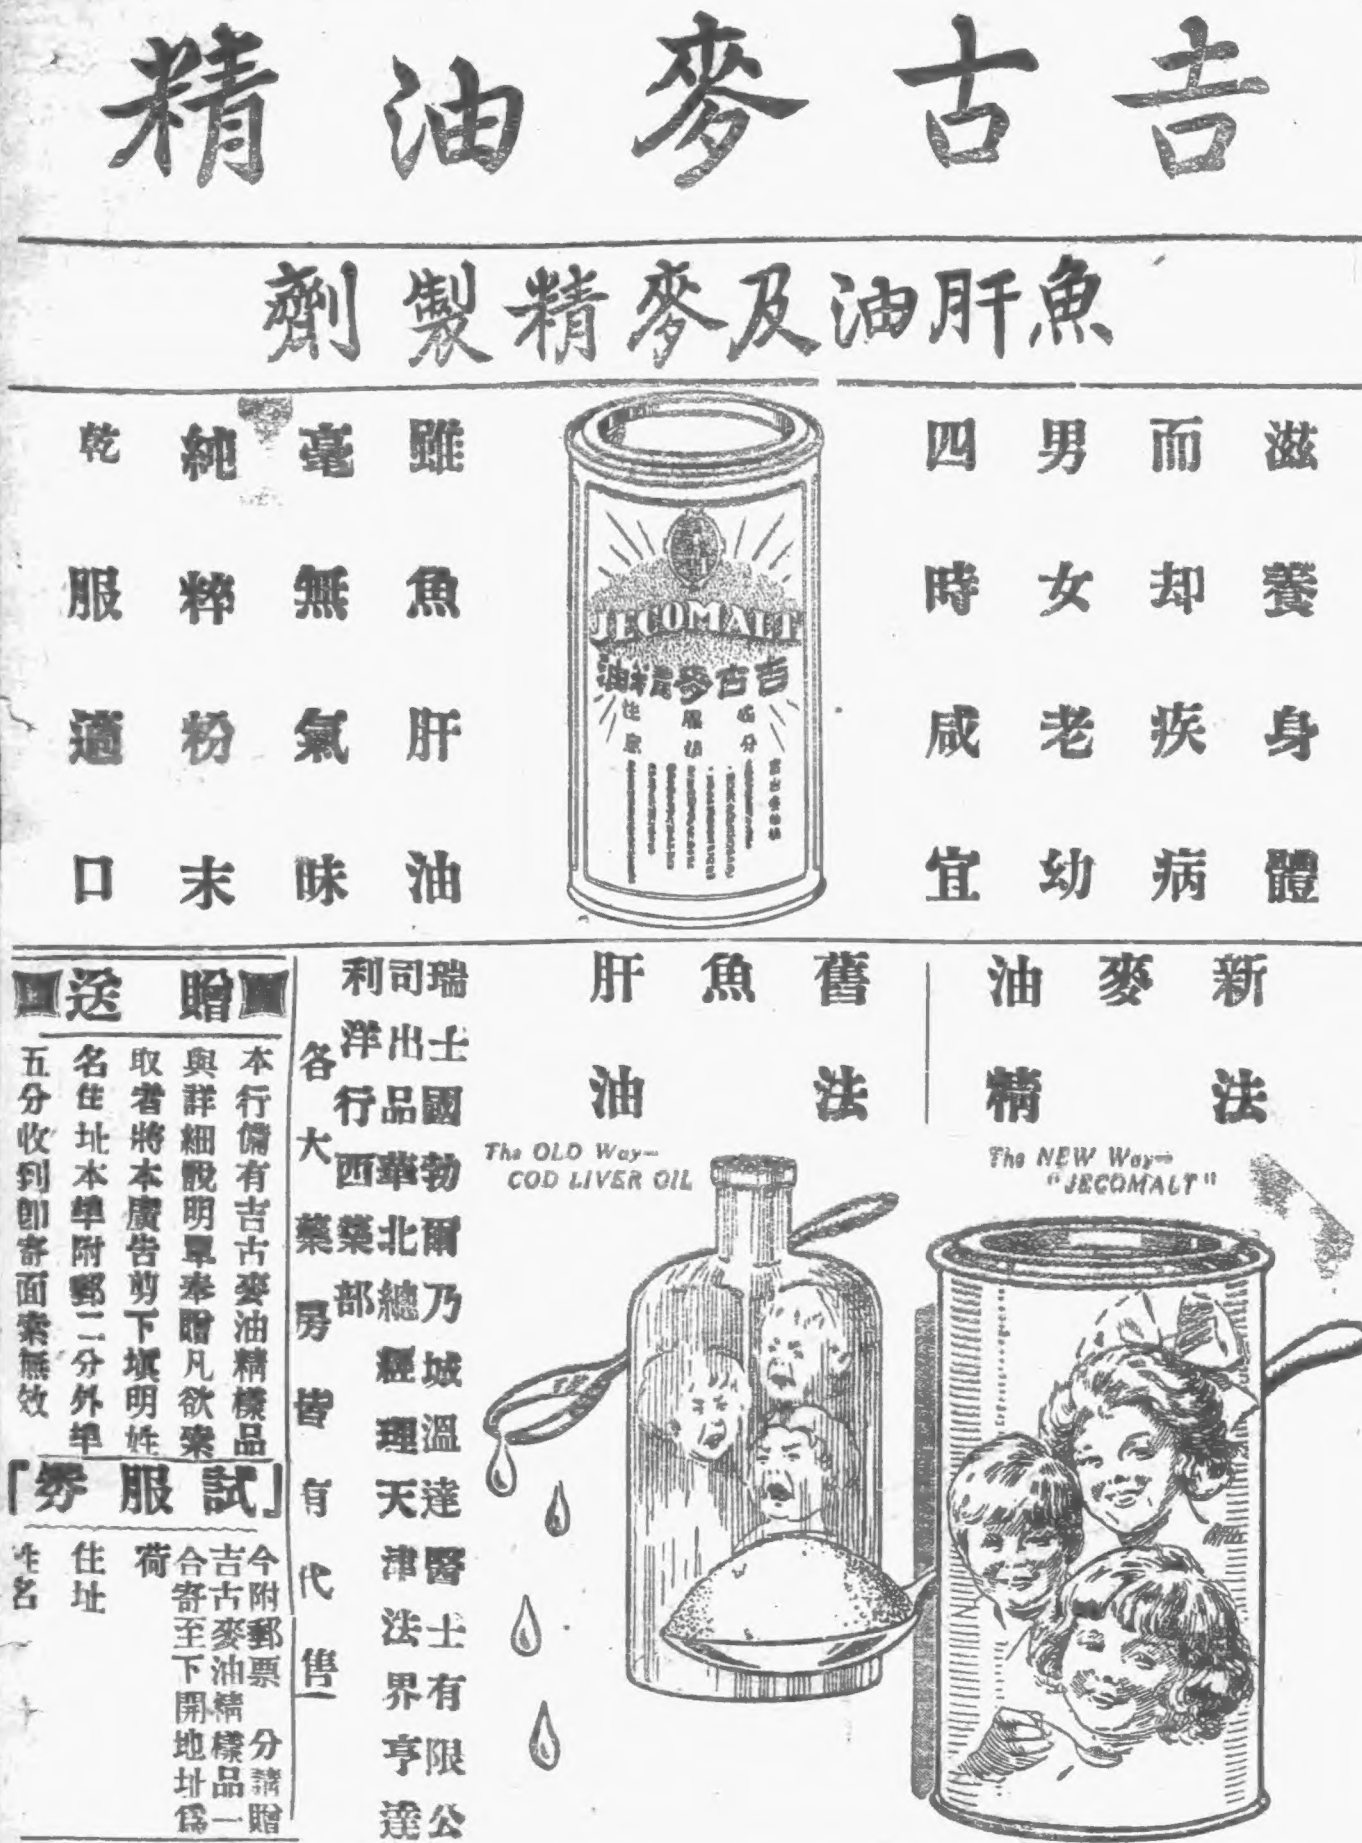 吉古麥油精
魚肝油及麥精製劑
滋養身體
而却疾病
男女老幼
四時咸宜
JECOMALT
吉古麥精油
成分
服法
性狀
雖魚肝油
毫無氣味
純粹粉末
乾服適口
新法
麥
油精
The NEW Way—
"JECOMALT"
舊法
魚
肝油
The OLD Way—
COD LIVER OIL
瑞士國勃爾乃城溫達醫士有限公
司出品華北總經理天津法界亨達
利洋行西藥部
各大藥房皆有代售
贈送
本行備有吉古麥油精樣品
與詳細說明單奉贈凡欲索
取者將本廣告剪下填明姓
名住址本埠附郵二分外埠
五分收到卽寄面索無效
「試服券」
今附郵票 分請贈
吉古麥油精樣品一
合寄至下開地址爲
荷
住址
姓名